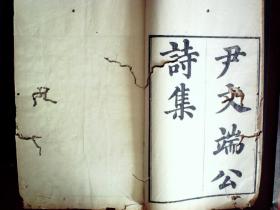 尹文端公
詩集